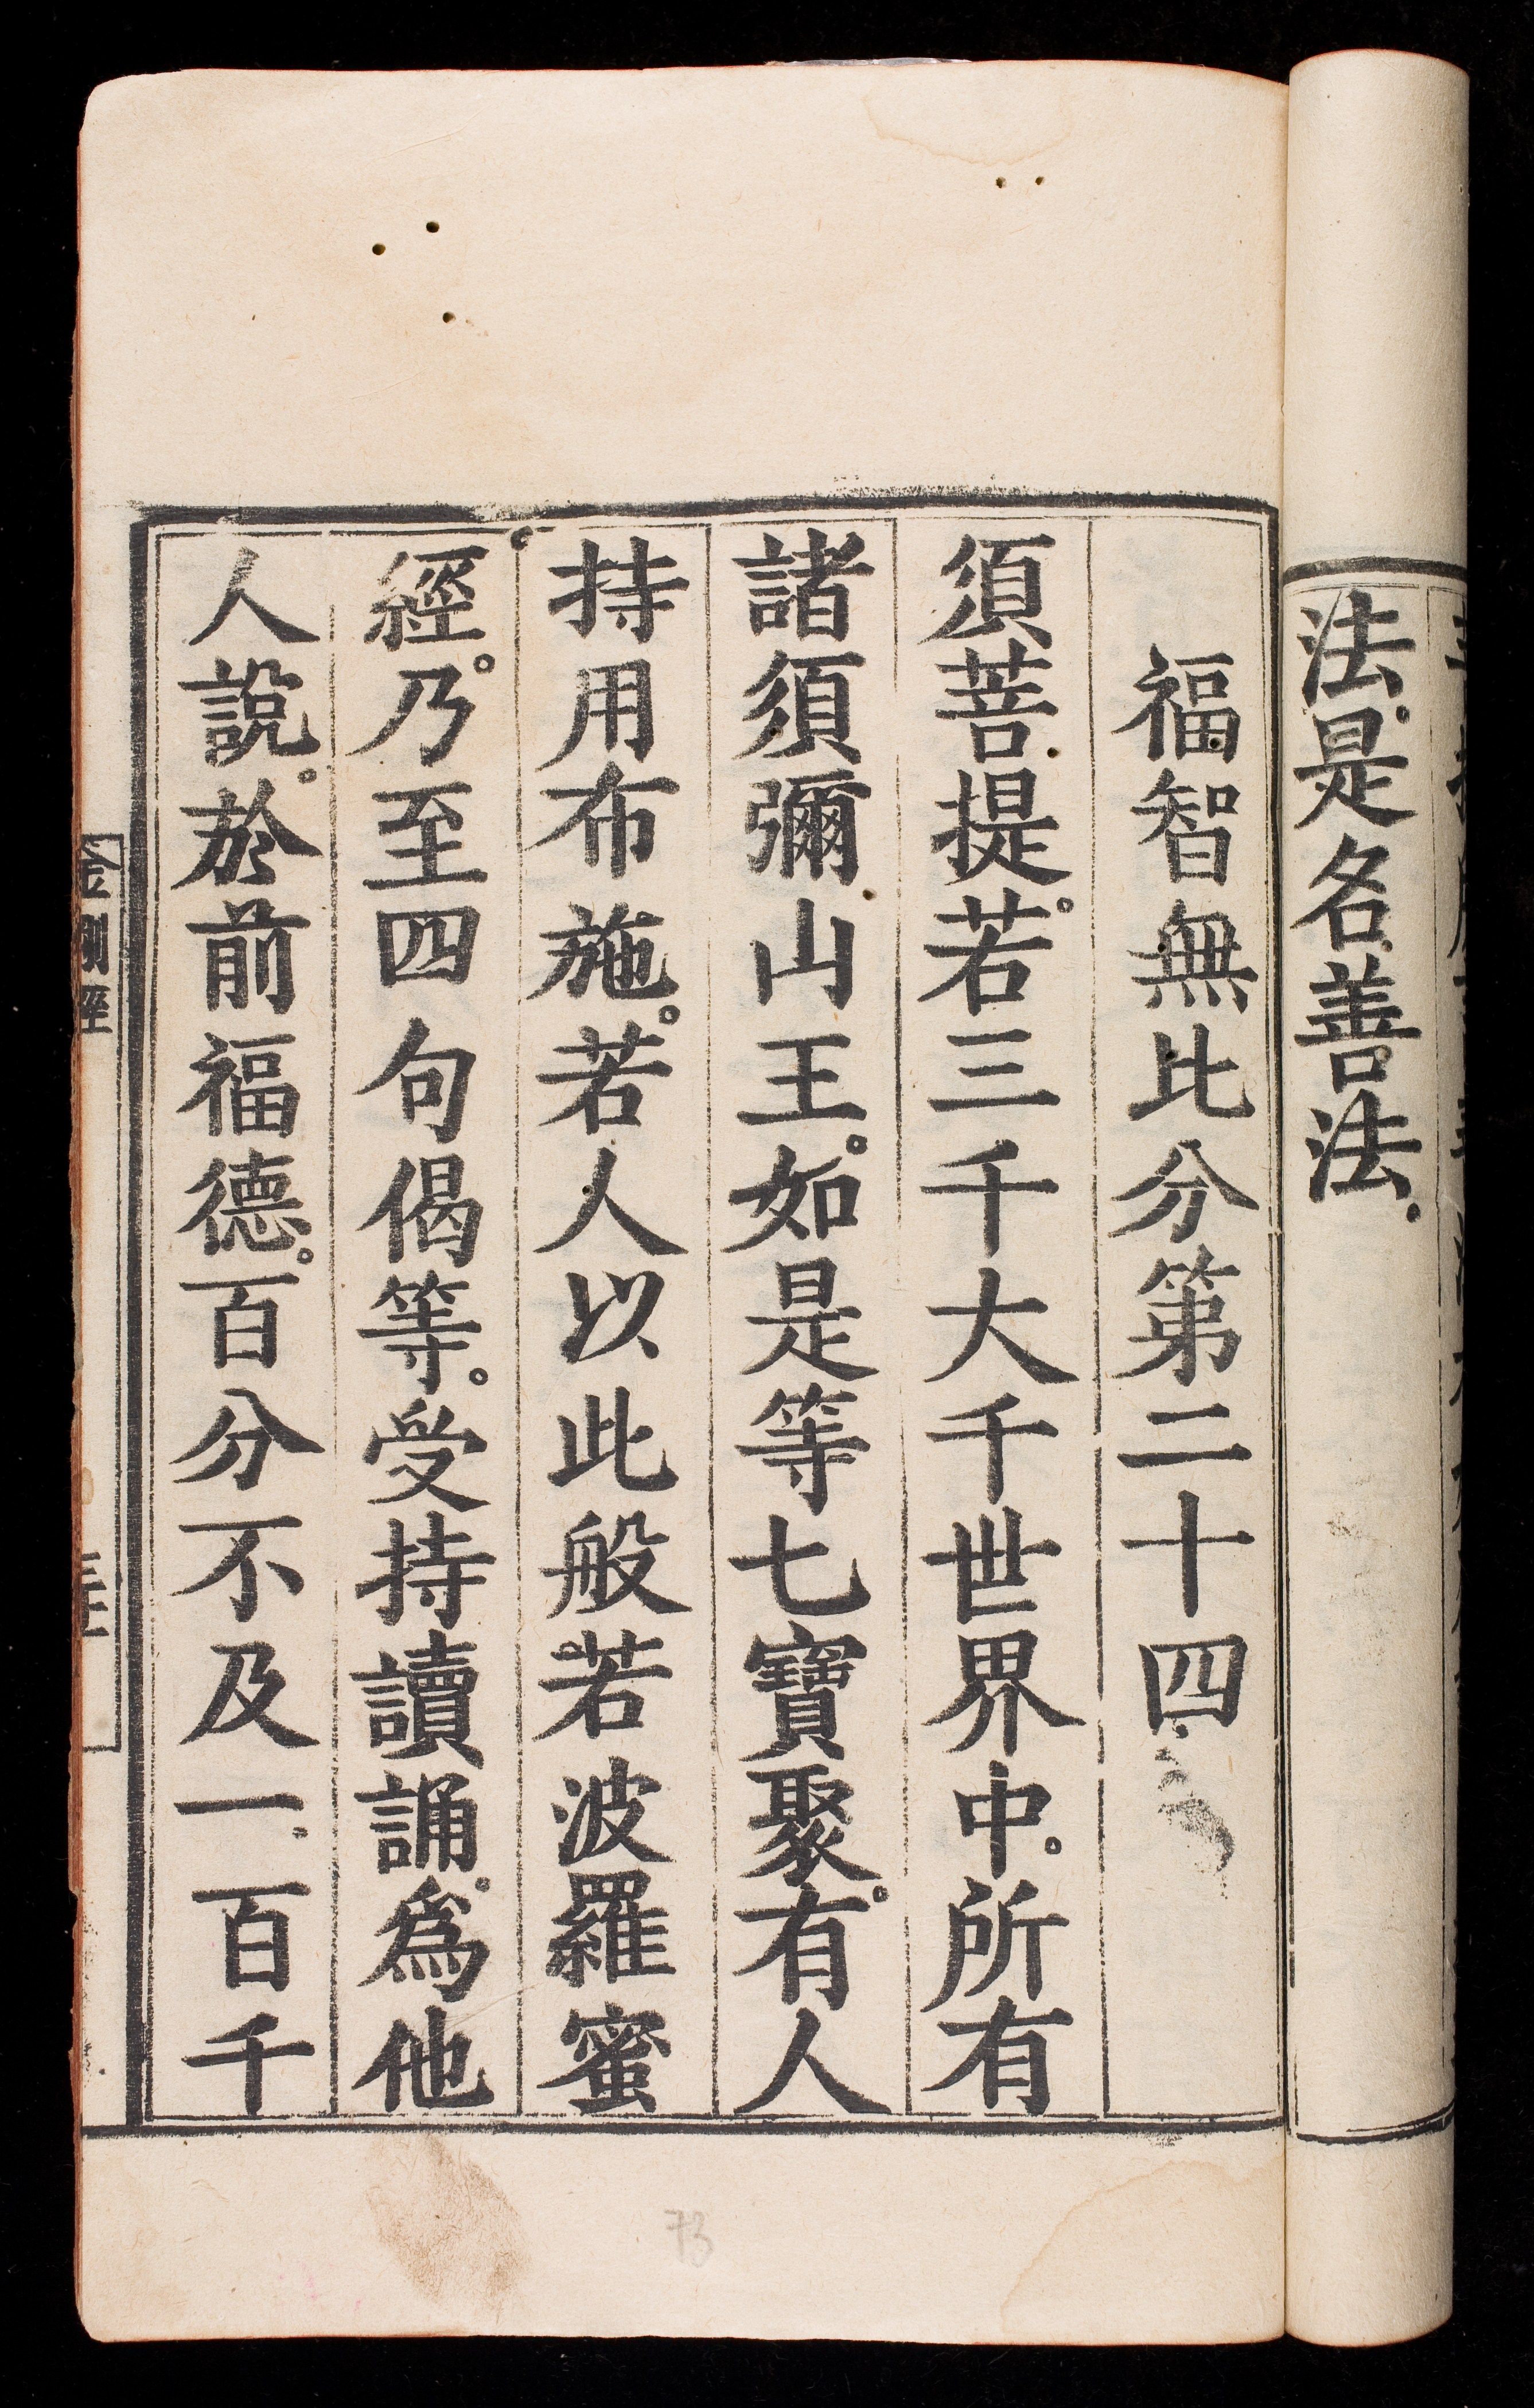 法。是名善法。
福智無比分第二十四
須菩提。若三千大千世界中。所有
諸須彌山王。如是等七寶聚。有人
持用布施。若人以此般若波羅蜜
經。乃至四句偈等。受持讀誦。爲他
人說。於前福德。百分不及一。百千
金剛經
73